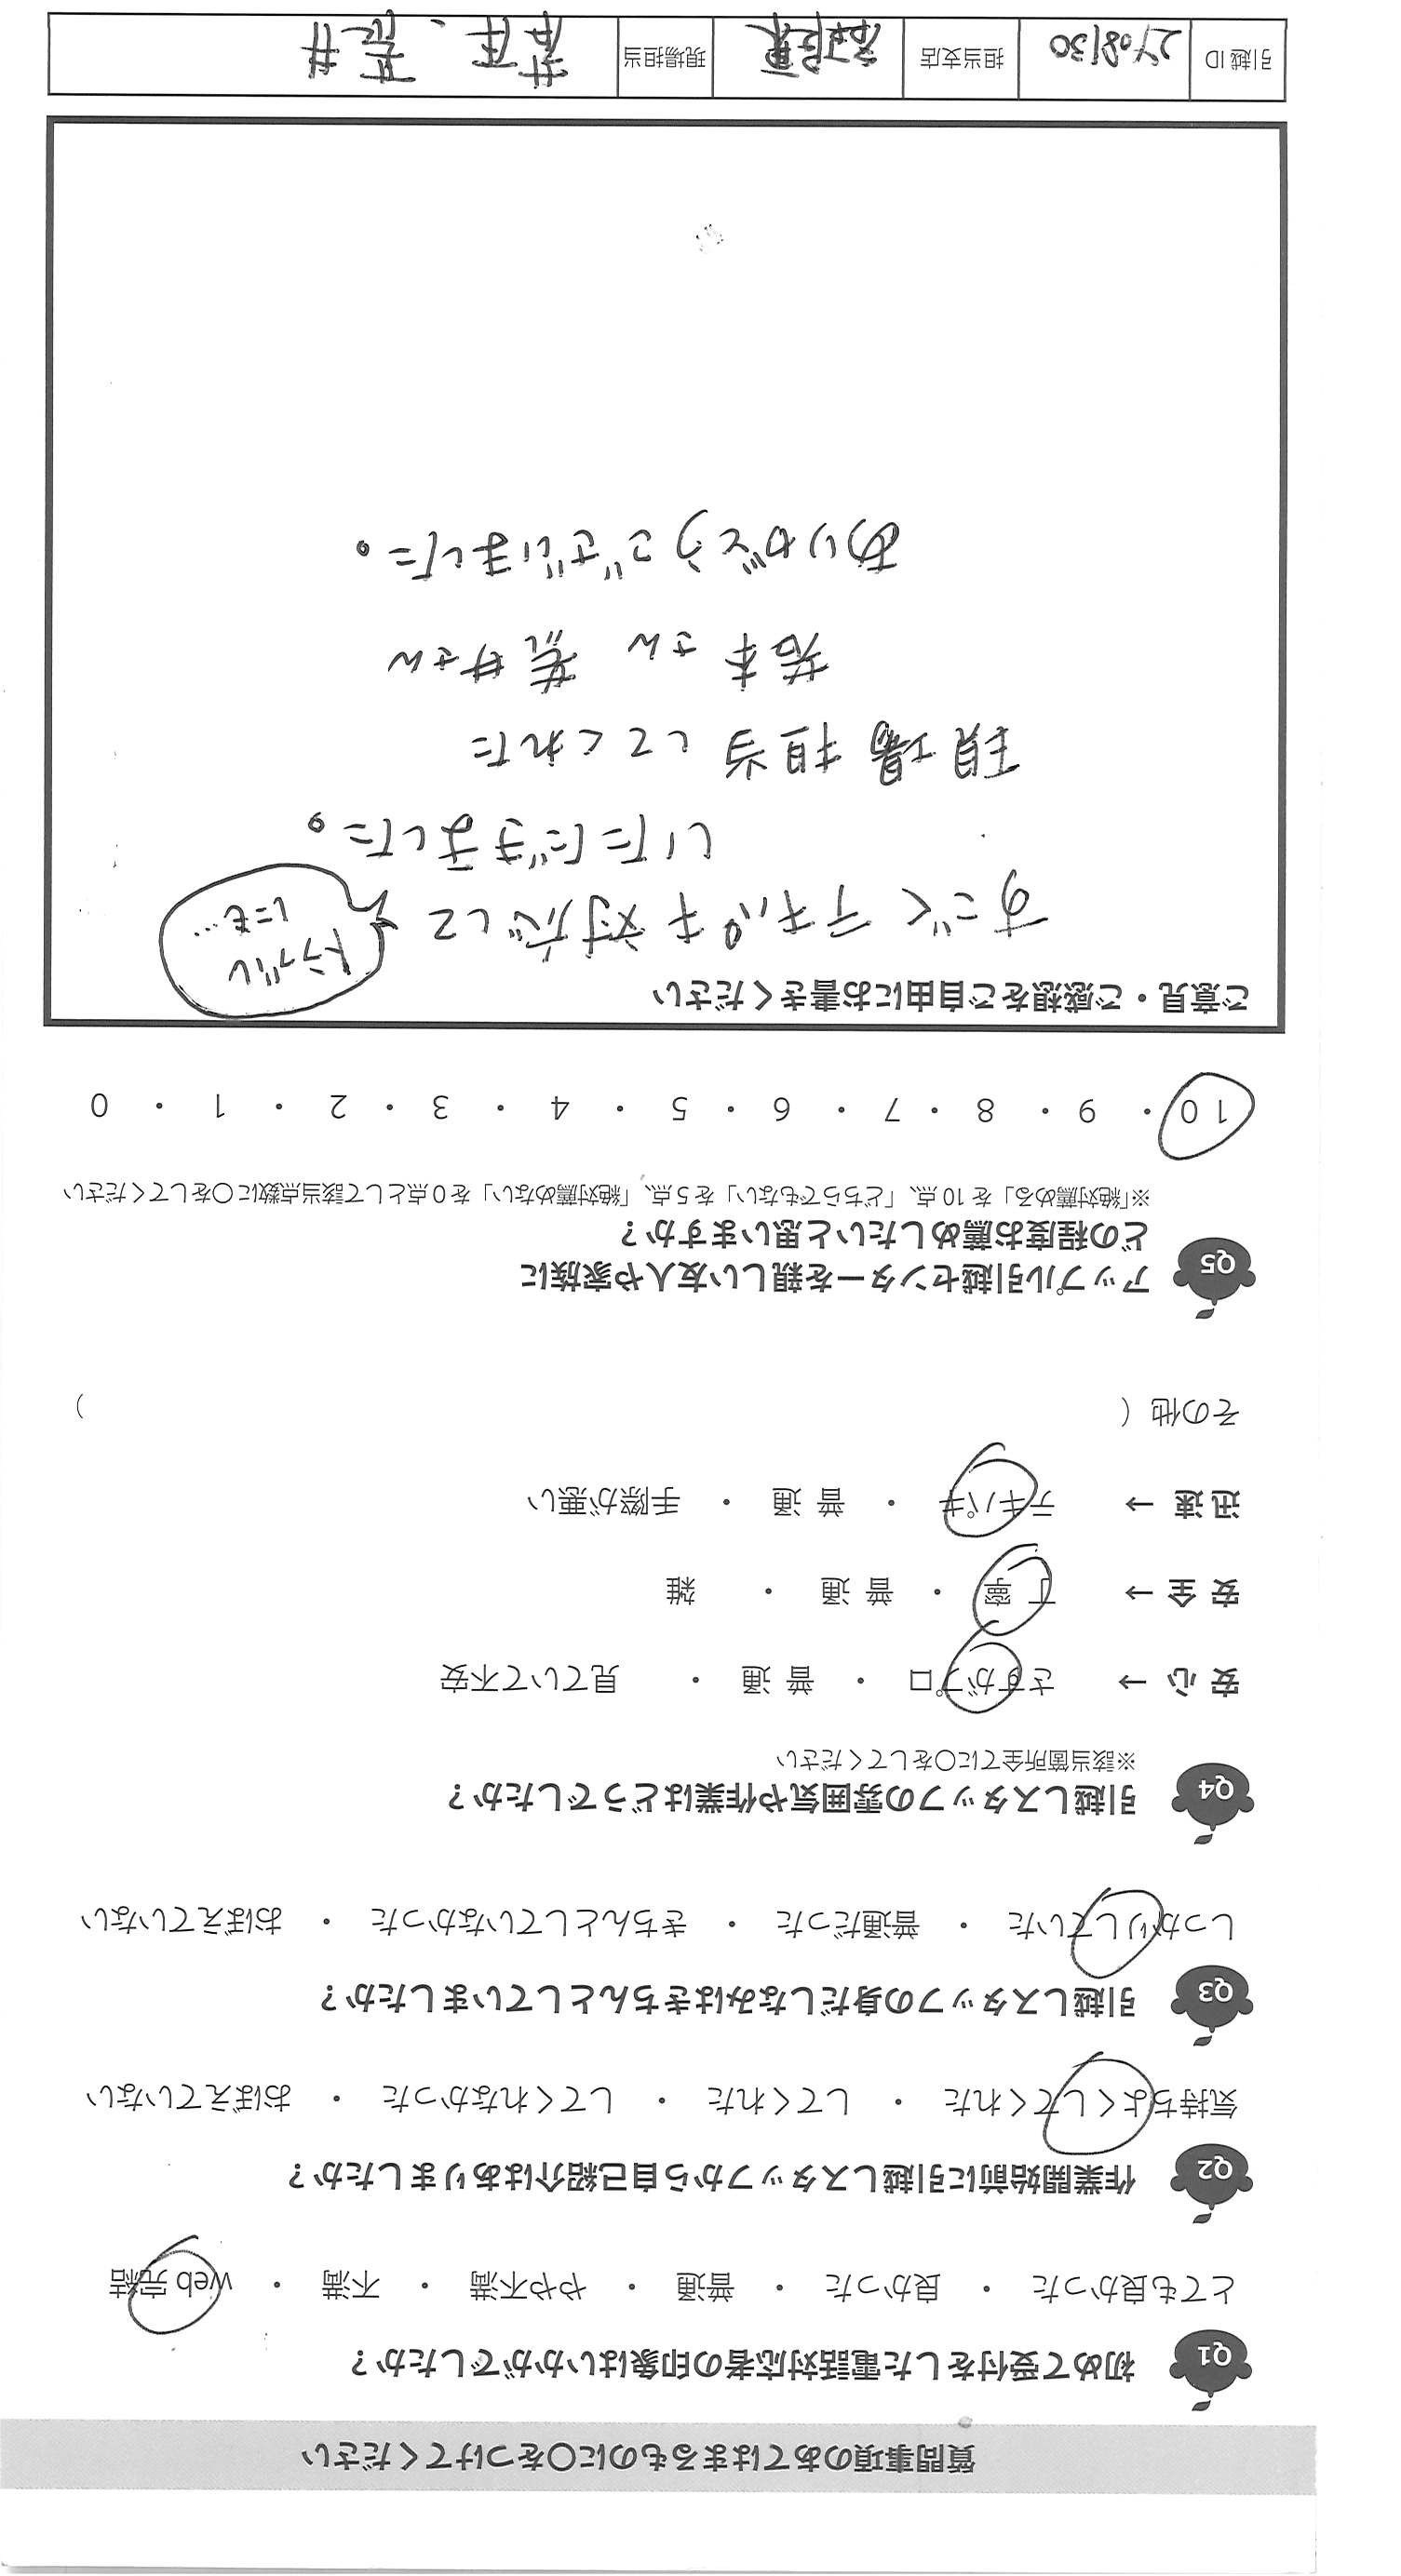 質問事項のあてはまるものに○をつけてください
Q1 初めて受付をした電話対応者の印象はいかがでしたか？
とても良かった ・ 良かった ・ 普通 ・ やや不満 ・ 不満 ・ web 完結
Q2 作業開始前に引越しスタッフから自己紹介はありましたか？
気持ちよくしてくれた ・ してくれた ・ してくれなかった ・ おぼえていない
Q3 引越しスタッフの身だしなみはきちんとしていましたか？
しっかりしていた ・ 普通だった ・ きちんとしていなかった ・ おぼえていない
Q4 引越しスタッフの雰囲気や作業はどうでしたか？
※該当箇所全てに○をしてください
安 心 → さすがプロ ・ 普 通 ・ 見ていて不安
安 全 → 丁 寧 ・ 普 通 ・ 雑
迅 速 → テキパキ ・ 普 通 ・ 手際が悪い
その他（ ）
Q5 アップル引越センターを親しい友人や家族に
どの程度お薦めしたいと思いますか？
※「絶対薦める」を 10 点、「どちらでもない」を 5 点、「絶対薦めない」を 0 点として該当点数に○をしてください
10 ・ 9 ・ 8 ・ 7 ・ 6 ・ 5 ・ 4 ・ 3 ・ 2 ・ 1 ・ 0
ご意見・ご感想をご自由にお書きください
すごく テキパキ 対応して
トラブル
にも…
いただきました。
現場担当してくれた
若本さん 荒井さん
ありがとうございました。
引越 ID 2408130 担当支店 現場担当 若本、荒井